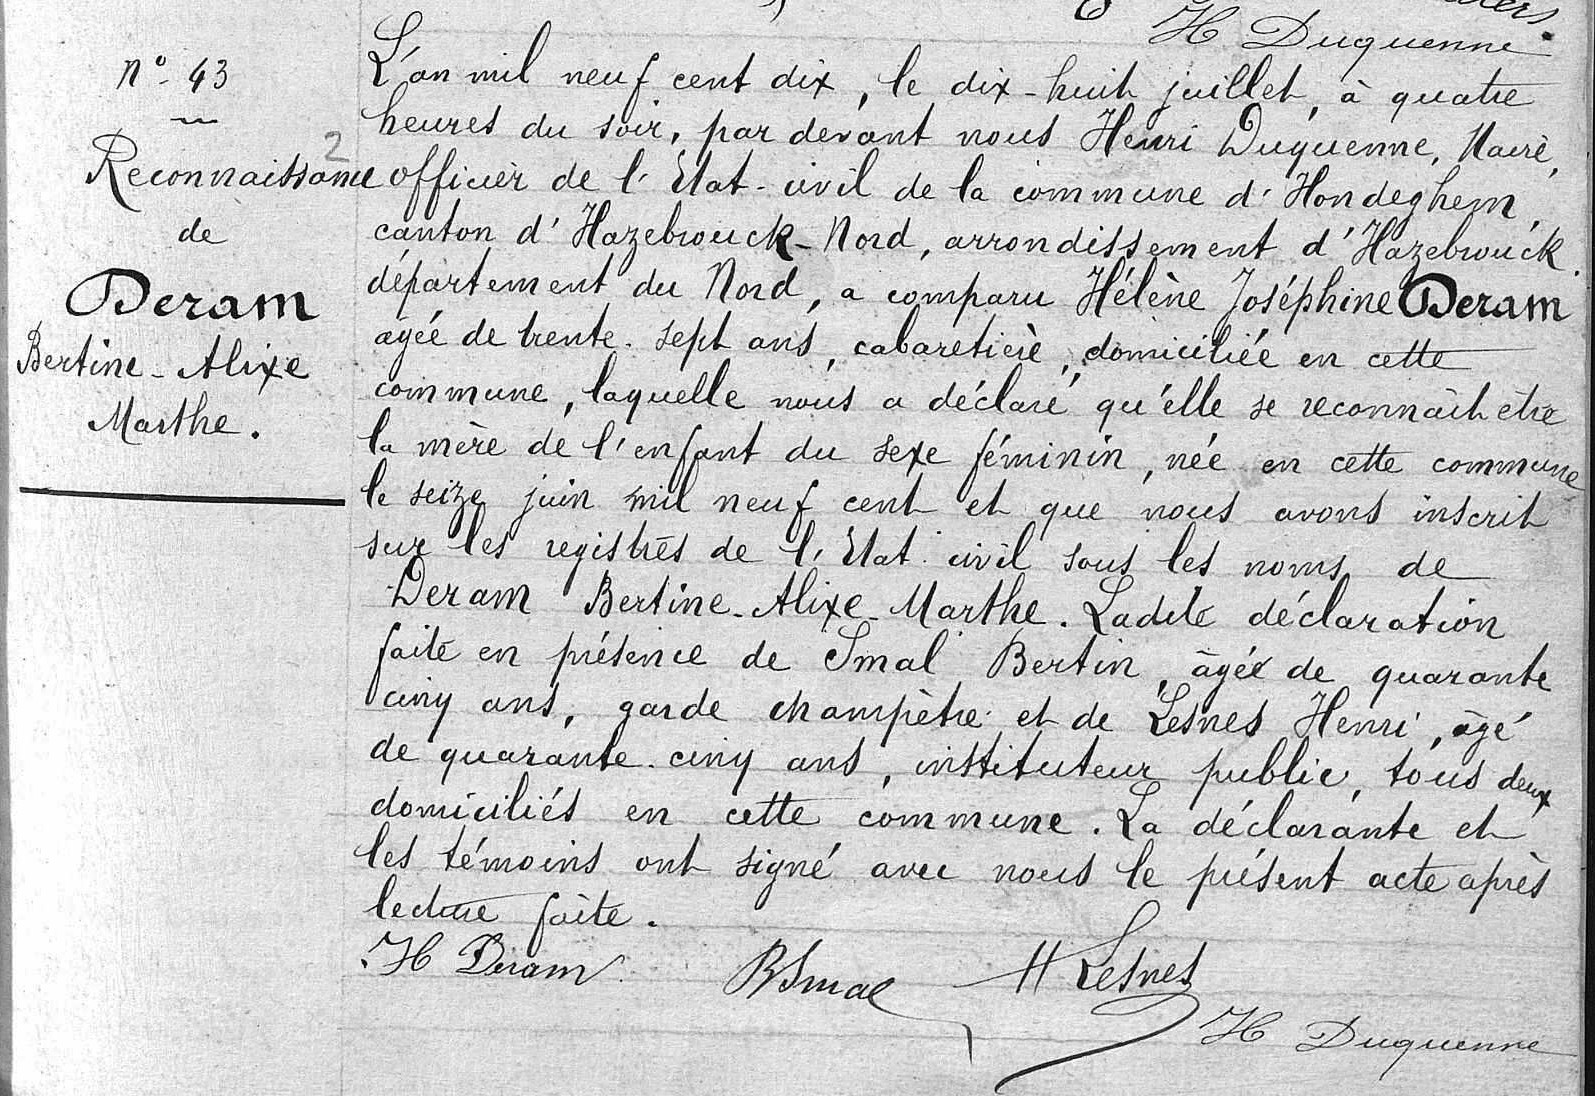 H Duquenne
N° 43
Reconnaissance
2
de
Deram
Bertine-Alixe
Marthe.
L'an mil neuf cent dix, le dix-huit juillet, à quatre
heures du soir, par devant nous Henri Duquenne, Maire,
officier de l'Etat-civil de la commune d'Hondeghem,
canton d'Hazebrouck-Nord, arrondissement d'Hazebrouck.
département du Nord, a comparu Hélène Joséphine Deram
agée de trente-sept ans, cabaretière, domiciliée en cette
commune, laquelle nous a déclaré qu'elle se reconnaît être
la mère de l'enfant du sexe féminin, née en cette commune
le seize juin mil neuf cent et que nous avons inscrit
sur les registres de l'Etat-civil sous les noms de
Deram Bertine-Alixe-Marthe. Ladite déclaration
faite en présence de Smal Bertin, âgée de quarante
cinq ans, garde champêtre et de Lesnes Henri, âgé
de quarante-cinq ans, instituteur public, tous deux
domiciliés en cette commune. La déclarante et
les témoins ont signé avec nous le présent acte après
lecture faite.
H Deram BSmal H Lesnes
H Duquenne